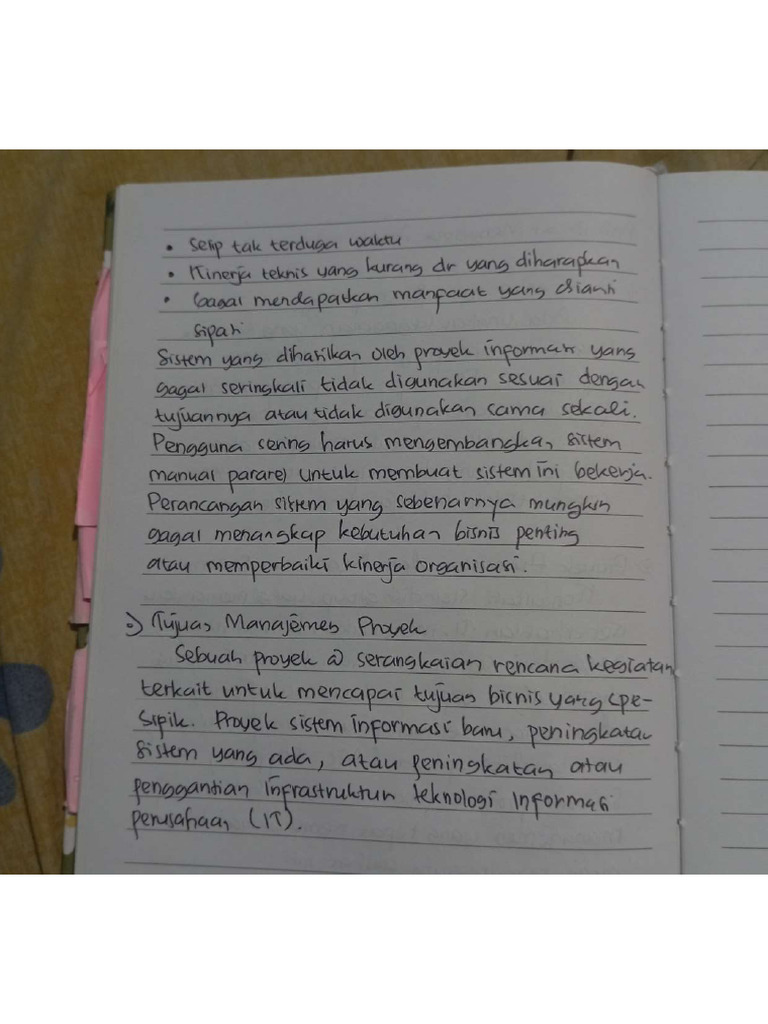 • Selip tak terduga waktu
• Kinerja teknis yang kurang dr yang diharapkan
• Gagal mendapatkan manpaat yang dianti
sipasi
Sistem yang dihasilkan oleh proyek informasi yang
gagal seringkali tidak digunakan sesuai dengan
tujuannya atau tidak digunakan sama sekali.
Pengguna sering harus mengembangkan sistem
manual pararel untuk membuat sistem ini bekerja.
Perancangan sistem yang sebenarnya mungkin
gagal menangkap kebutuhan bisnis penting
atau memperbaiki kinerja organisasi.
Tujuan Manajemen Proyek
Sebuah proyek a) serangkaian rencana kegiatan
terkait untuk mencapai tujuan bisnis yang spe-
sipik. Proyek sistem informasi baru, peningkatan
sistem yang ada, atau peningkatan atau
penggantian infrastruktur teknologi informasi
perusahaan (IT).